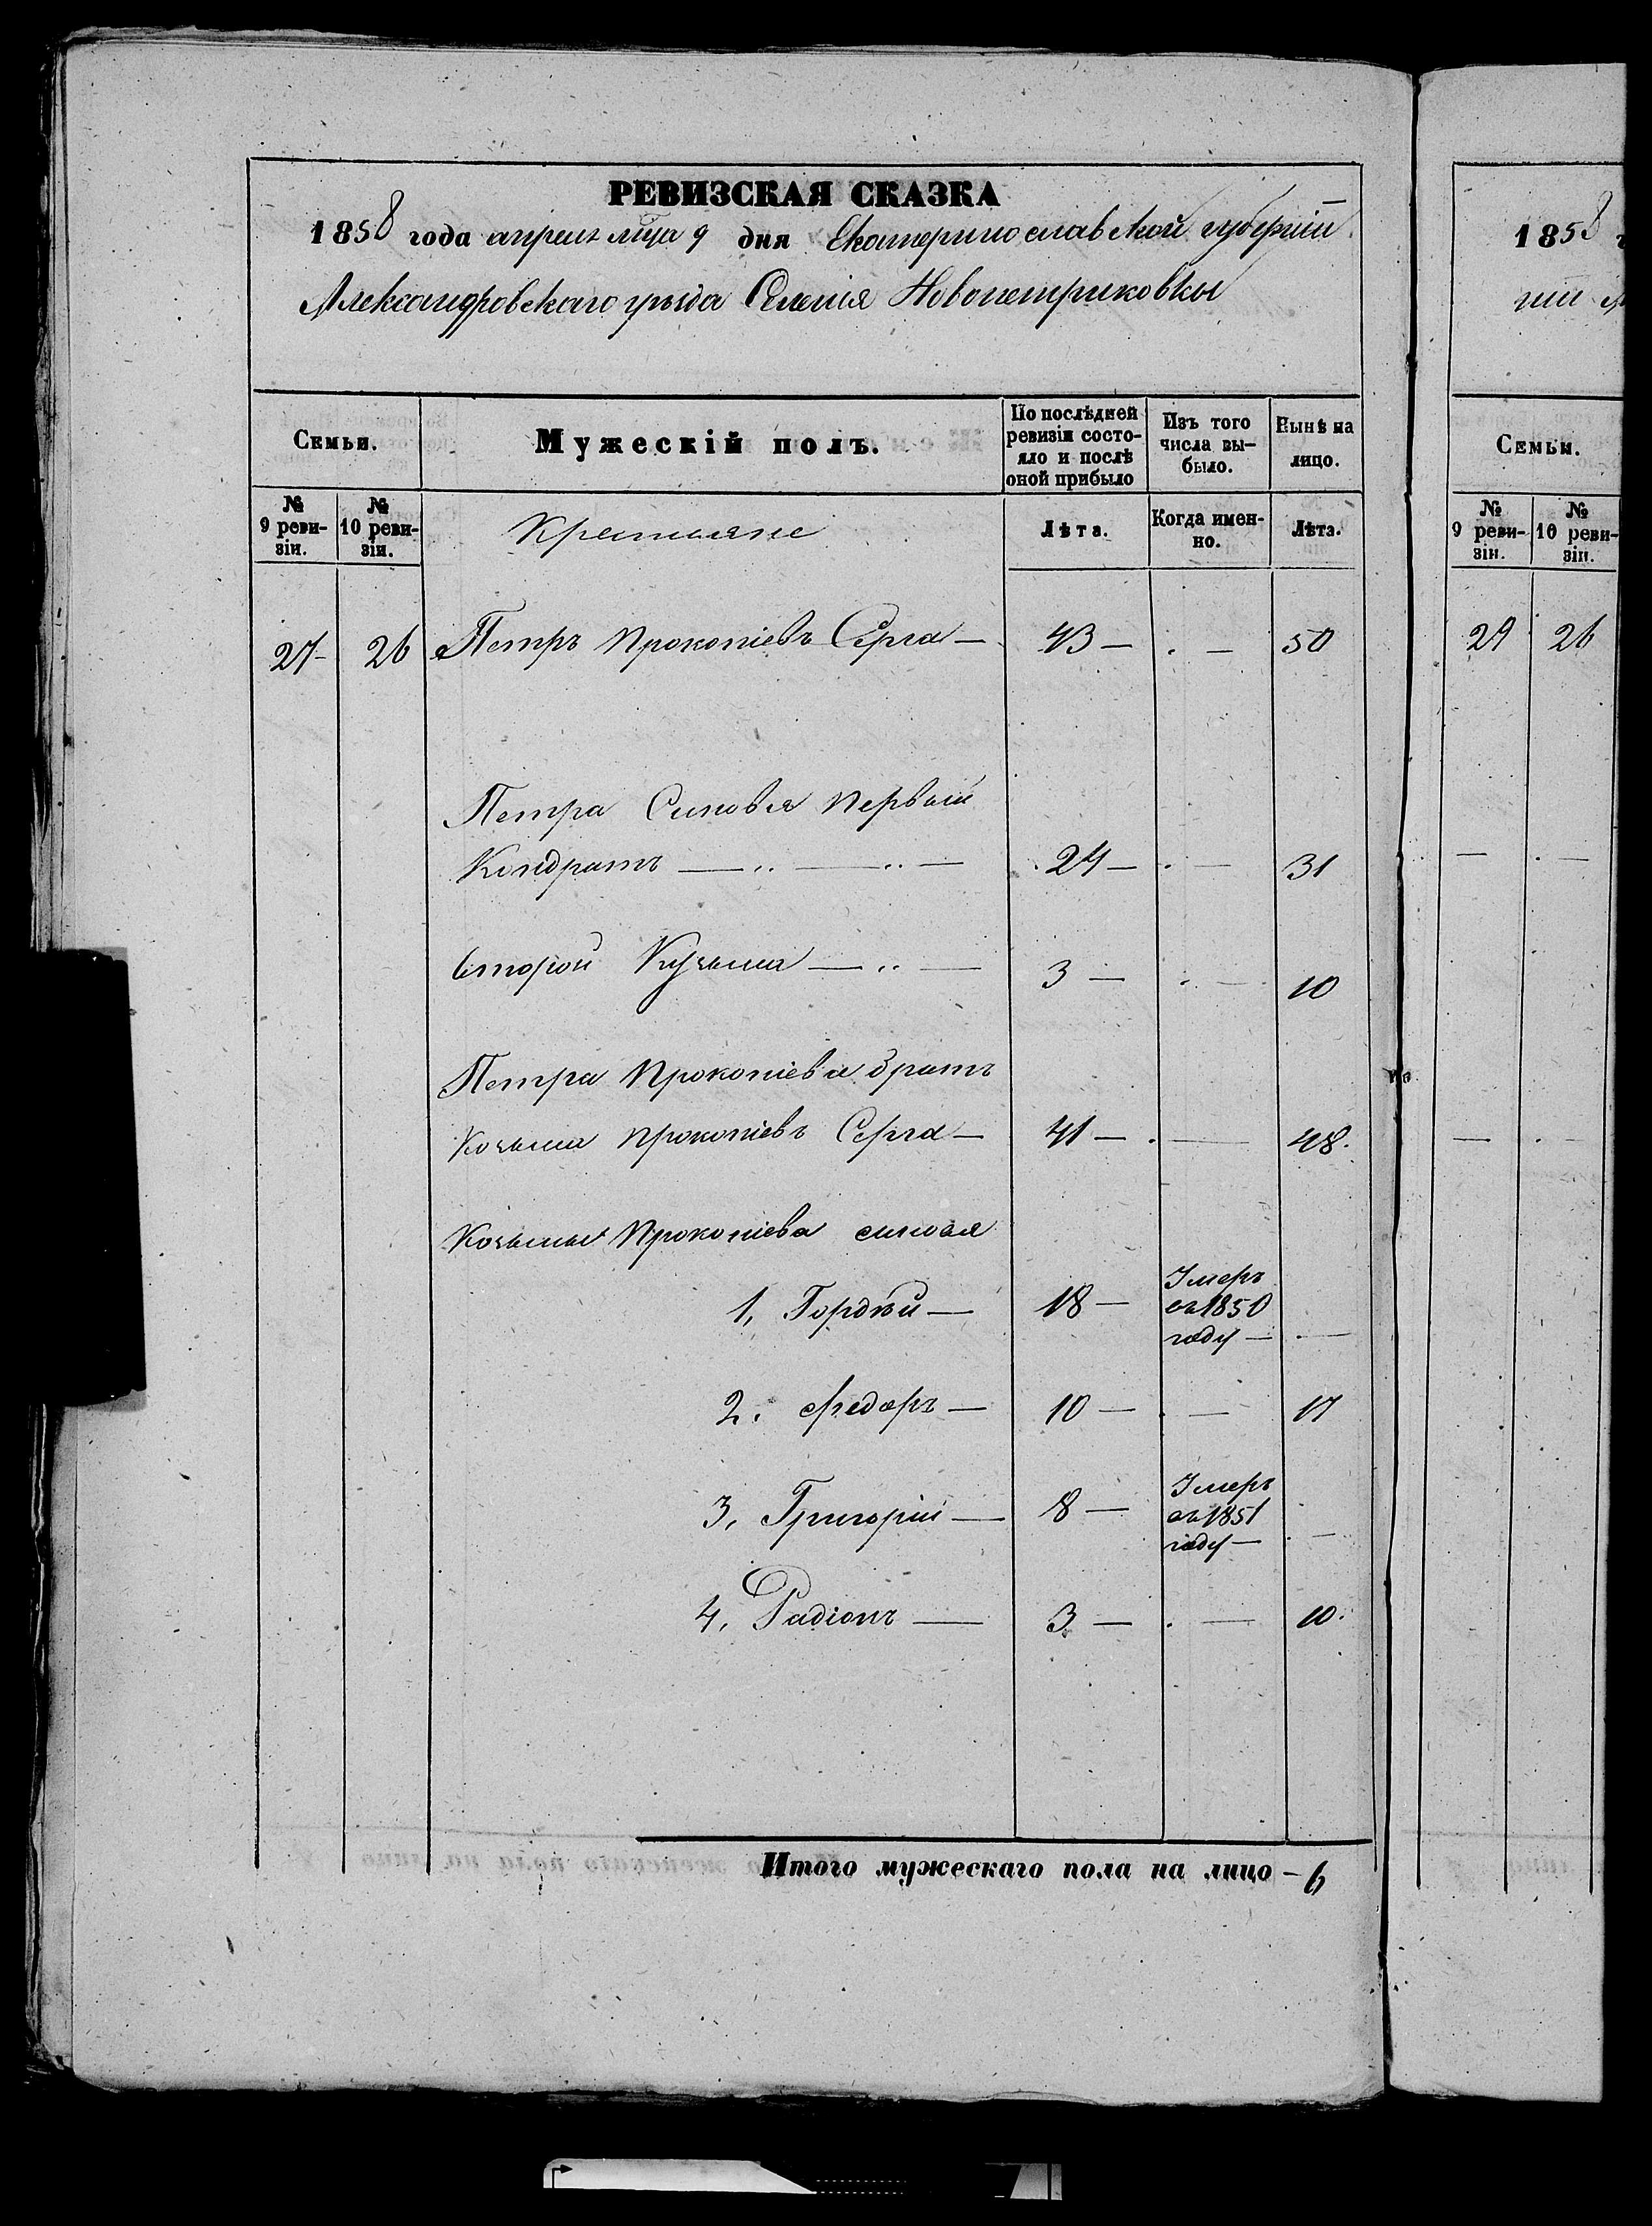 РЕВИЗСКАЯ СКАЗКА
1858 года апреля м҃ца 9 дня Екатеринославской губерніи
Александровскаго уѣзда Селенія Новопетриковки
Семьи.
Мужескій полъ.
По послѣдней
ревизіи состо-
яло и послѣ
оной прибыло
Изъ того
числа вы-
было.
Нынѣ на
лицо.
№
9 реви-
зіи.
№
10 реви-
зіи.
Крестьяне
Лѣта.
Когда имен-
но.
Лѣта.
27 26 Петръ Прокопіевъ Серга — 43 — . — 50
Петра Синовья первый
Кондратъ — „ — „ — 24 — . — 31
второй Кузьма — „ — 3 — . — 10
Петра Прокопіева братъ
Козьма Прокопіевъ Серга — 41 — . — 48.
Козьмы Прокопіева синовя
1, Гордѣй — 18 — Умеръ
въ 1850
году — . —
2. Федоръ — 10 — . — 17
3, Григорій — 8 — Умеръ
въ 1851
году — . —
4, Радіонъ — 3 — . — 10.
Итого мужескаго пола на лицо — 6
1858
Семьи.
№
9 реви-
зіи.
№
10 реви-
зіи.
29 26
— . —
— . —